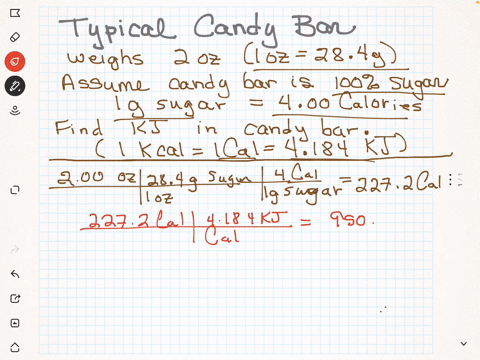 Typical Candy Bar
weighs 2 oz (1 oz = 28.4g)
Assume candy bar is 100% sugar
1g sugar = 4.00 Calories
Find KJ in candy bar.
(1 Kcal = 1Cal = 4.184 KJ)
2.00 oz | 28.4g sugar | 4 Cal = 227.2 Cal
1oz | 1g sugar
227.2 Cal | 4.184 KJ = 950.
Cal